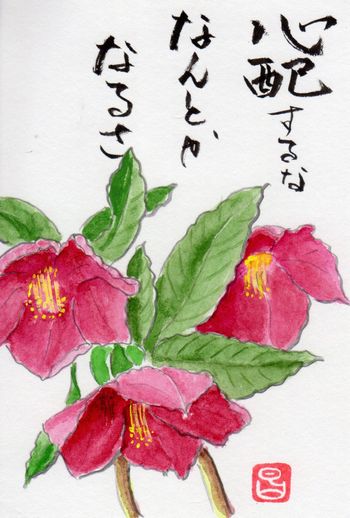 心配するな
なんとか
なるさ